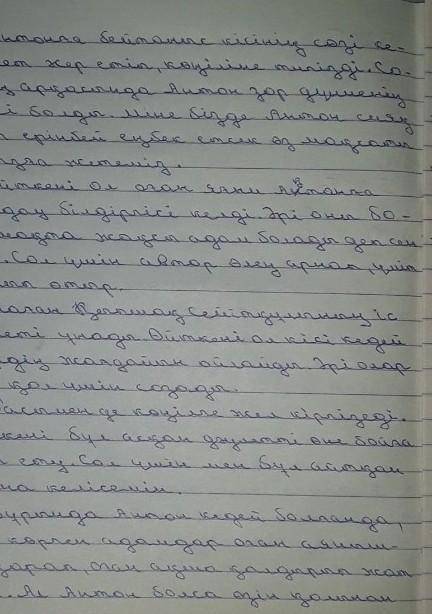 Антонға бейтаныс кісінің сөзі се-
ет жер етіп, көңіліне тигізді. Со-
ң арқасында Антон зор дүниенің
і болды. Міне бізде Антон сияқ
еріпбей еңбек етсек өз мақсаты
ызға жетеміз.
йткені ол оған яғни Антонға
дау білдіргісі келді. Әрі оны бо-
лашақта жақсы адам болады деп сен
. Сол үшін автор өлең арнап, үміт
отыр.
маған Қыпшақ Сейтқұлының іс
еті ұнады. Өйткені ол кісі кедей
рдің жағдайын ойлайды. Әрі олар
қол үшін созады.
асымен де көңілге жел кіргізеді.
кені бұл асқан дәулетті әне байға
ену. Сол үшін мен бұл айтқан
на келісемін.
бұрында Антон кедей болғанда,
көрген адамдар оған аяныш-
қарап, оған ақша қалдырып жат
. Ал Антон болса өзін қолынан